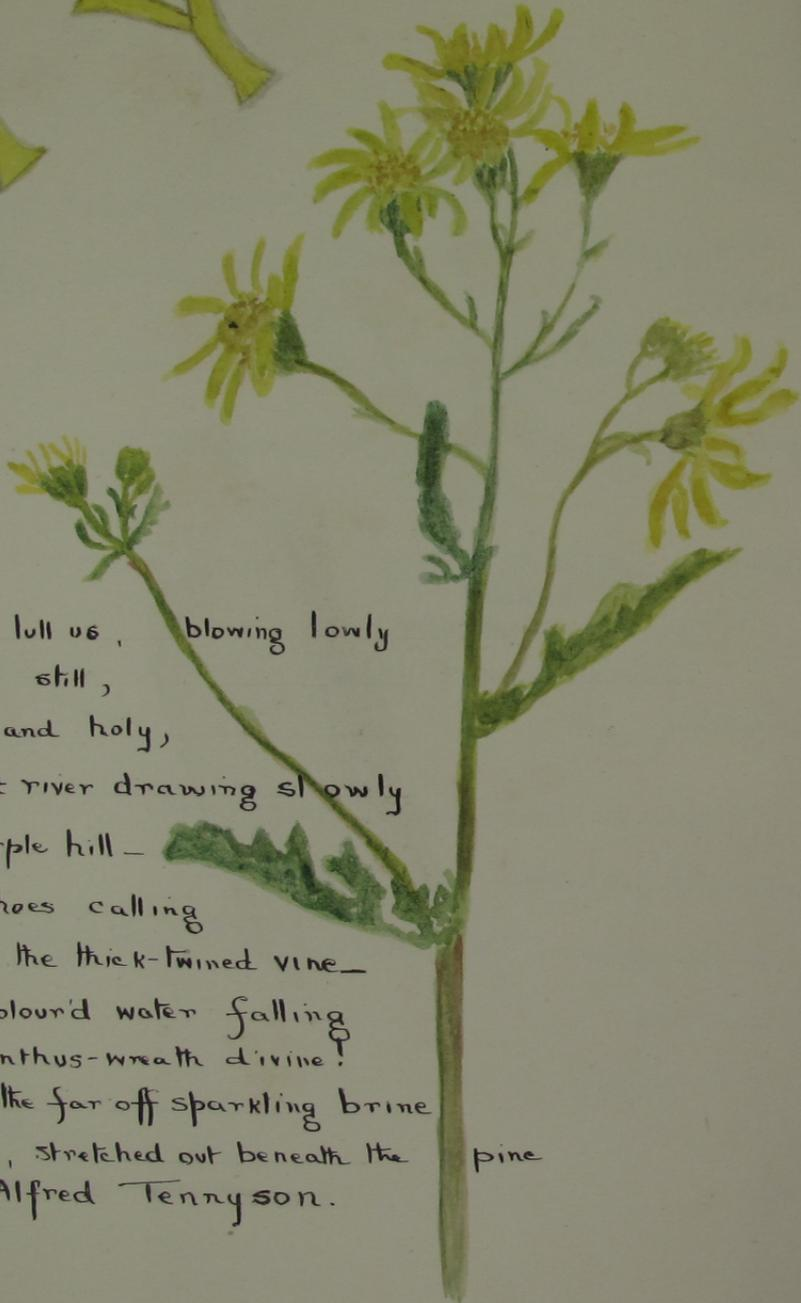 lull us, blowing lowly
still,
and holy,
river drawing slowly
ple hill —
hoes calling
the thick-twined vine —
olour'd water falling
nthus-wreath divine!
the far off sparkling brine
, stretched out beneath the pine
Alfred Tennyson.